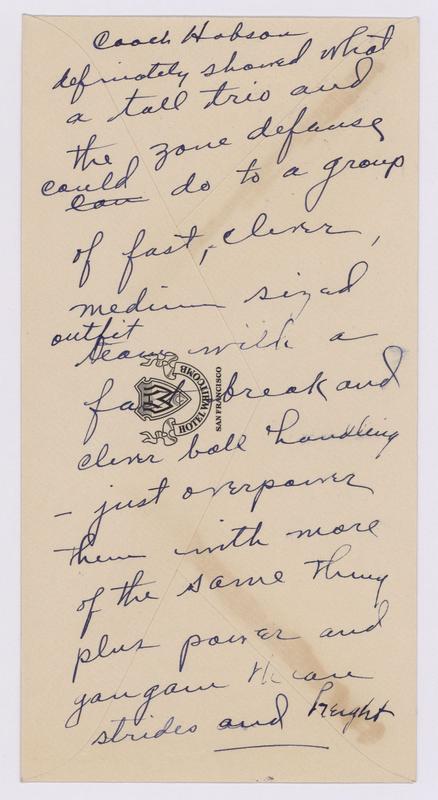 Coach Hobson
definately showed what
a tall trio and
the zone defense
could
can do to a group
of fast, clever,
medium sized
outfit
team with a
fast break and
HOTEL WHITCOMB
SAN FRANCISCO
clever ball handling
- just overpower
them with more
of the same thing
plus power and
strides and height